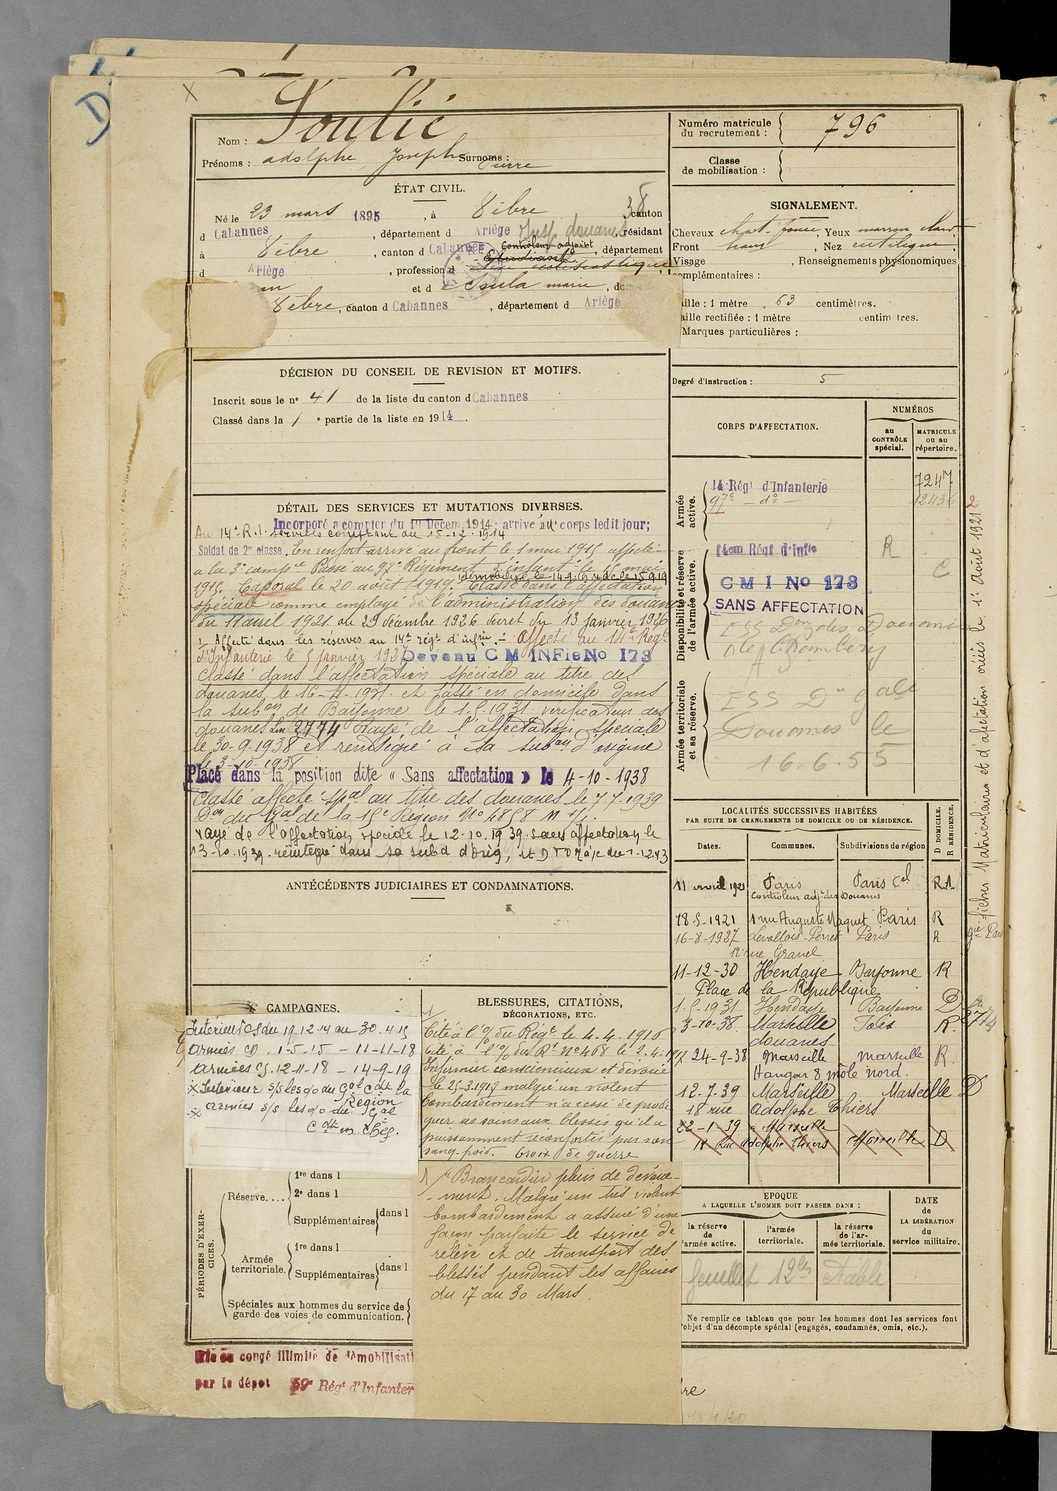 D
Soulié
Nom :
Prénoms : adolphe Joseph Surnoms : Pierre
Numéro matricule du recrutement : 796
Classe de mobilisation :
ÉTAT CIVIL.
Né le 23 mars 1895, à Vèbre, canton
d Cabannes, département d Ariège, résidant
à Vèbre, canton d Cabannes, département
d Ariège, profession d
et d Soula marie
Vèbre, canton d Cabannes, département d Ariège
Insp douanes
Controleur adjoint
Etudiant
SIGNALEMENT.
Cheveux chat. foncé, Yeux marron clair
Front haut, Nez rectiligne,
Visage , Renseignements physionomiques
complémentaires :
Taille : 1 mètre 63 centimètres.
Taille rectifiée : 1 mètre centimètres.
Marques particulières :
DÉCISION DU CONSEIL DE REVISION ET MOTIFS.
Inscrit sous le n° 41 de la liste du canton d Cabannes
Classé dans la 1e partie de la liste en 1914.
Degré d'instruction : 5
CORPS D'AFFECTATION.
NUMÉROS
au CONTRÔLE spécial.
MATRICULE ou au répertoire.
Armée active.
14 Régt d'Infanterie
97e - do -
7247
12436
Disponibilité et réserve de l'armée active.
14em Régt d'Infie
R
C M I No 173
C
SANS AFFECTATION
Armée territoriale et sa réserve.
ESS Don gale
Douanes le
16.6.55
DÉTAIL DES SERVICES ET MUTATIONS DIVERSES.
Incorporé a compter du 1er Décem. 1914; arrivé au corps ledit jour;
Au 14e R.I. services comptant du 15-12-1914
Soldat de 2e classe. En renfort arrivé au front le 1 mai 1915 affecté
a la 3e compie Passé au 97e Régiment d'infant. le 15 mai
1915. Caporal le 20 août 1919. Classé dans l'affectation
spéciale comme employé de l'administration des douanes
du 11 avril 1921 au 29 décembre 1926 décret du 13 janvier 1926
Affecté dans les réserves au 14e régt d'infie - Affecté au 14e Régt
d'Infanterie le 5 janvier 1927 Devenu C M INFie No 173
Classé dans l'affectation spéciale au titre des
douanes, le 16-4-1921 et passé en domicile dans
la subon de Bayonne le 1.5.1931 vérificateur des
douanes 2774 Rayé de l'affectation spéciale
le 30-9-1938 et réintégré à la subon d'origine
le 3-10-1938
Placé dans la position dite « Sans affectation » le 4-10-1938
Classé affecté spal au titre des douanes le 7.7.1939
Don du Gal de la 15e Région No 4858
rayé de l'affectation spéciale le 12-10-1939 sans affectation le
13-10-1939. réintégré dans sa subd d'orig,
ANTÉCÉDENTS JUDICIAIRES ET CONDAMNATIONS.
LOCALITÉS SUCCESSIVES HABITÉES
PAR SUITE DE CHANGEMENTS DE DOMICILE OU DE RÉSIDENCE.
Dates. Communes. Subdivisions de région
D DOMICILE. R RÉSIDENCE.
11 avril 1921 Paris Paris Cal RA
Controleur adjt des Douanes
18-5-1921 1 rue Auguste Maquet Paris R
16-8-1927 Levallois-Perret Paris R
rue Gravel
11-12-30 Hendaye Bayonne R
Place de la République
1.5.1931 Hendaye Bayonne D
3-10-38 Marseille R
douanes
24-9-38 Marseille Marseille R
Hangar 8 môle nord.
12.7.39 Marseille Marseille D
18 rue Adolphe Thiers
22-1-39 Marseille
18 Rue Adolphe Thiers Marseille D
fiches Matriculaires et d'affectation créées le 1er Août 1921
CAMPAGNES.
Intérieur CS du 19.12.14 au 30.4.15
Armées CD. 1-5-15 - 11-11-18
Armées CS. 12-11-18 - 14-9-19
x Intérieur s/s les o/o du Gal Cdt la
Région
x armées s/s les o/o du Gal
Cdt en Chef.
BLESSURES, CITATIONS, DÉCORATIONS, ETC.
Cité à l'o/ du Régt le 4.4.1916
Cité à l'o/ du Rt No 468 le 2.4.
Infirmier consciencieux et dévoué
le 25.3.1917 malgré un violent
bombardement n'a cessé de prodi-
guer ses soins aux blessés qu'il a
puissamment réconfortés par son
sang-froid. Croix de guerre
Brancardier plein de dévoue-
-ment. Malgré un très violent
bombardement a assuré d'une
façon parfaite le service de
relève et de transport des
blessés pendant les affaires
du 17 au 30 Mars.
PÉRIODES D'EXERCICES.
Réserve....
1re dans l
2e dans l
Supplémentaires dans l
Armée territoriale.
1re dans l
Supplémentaires dans l
Spéciales aux hommes du service de garde des voies de communication.
EPOQUE
A LAQUELLE L'HOMME DOIT PASSER DANS :
la réserve de l'armée active.
l'armée territoriale.
la réserve de l'armée territoriale.
DATE de LA LIBÉRATION du service militaire.
Ne remplir ce tableau que pour les hommes dont les services font
l'objet d'un décompte spécial (engagés, condamnés, omis, etc.).
Mis en congé illimité de démobilisati
par le dépôt 59e Régt d'Infanter